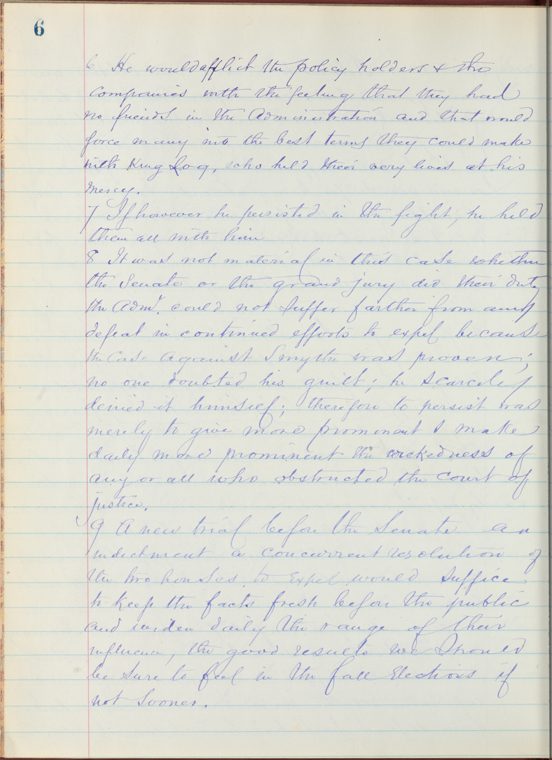 6
6 He would afflict the policy holders & the
companies with the feeling that they had
no friends in the Administration and that would
force many into the best terms they could make
with King Log, who held their very lives at his
mercy.
7 If however he persisted in the fight, he held
them all with him
8 It was not material in this case whether
the Senate or the grand jury did their duty
the Admn. could not suffer farther from any
defeat in continued efforts to expel because
the case against Smythe was proven;
no one doubted his guilt; he scarcely
denied it himself; therefore to persist was
merely to give more prominent & make
daily more prominent the wickedness of
any or all who obstructed the court of
justice.
9 A new trial before the Senate an
indictment a concurrent resolution of
the two houses to expel would suffice
to keep the facts fresh before the public
and widen daily the range of their
influence, the good results we should
be sure to feel in the fall elections if
not sooner.